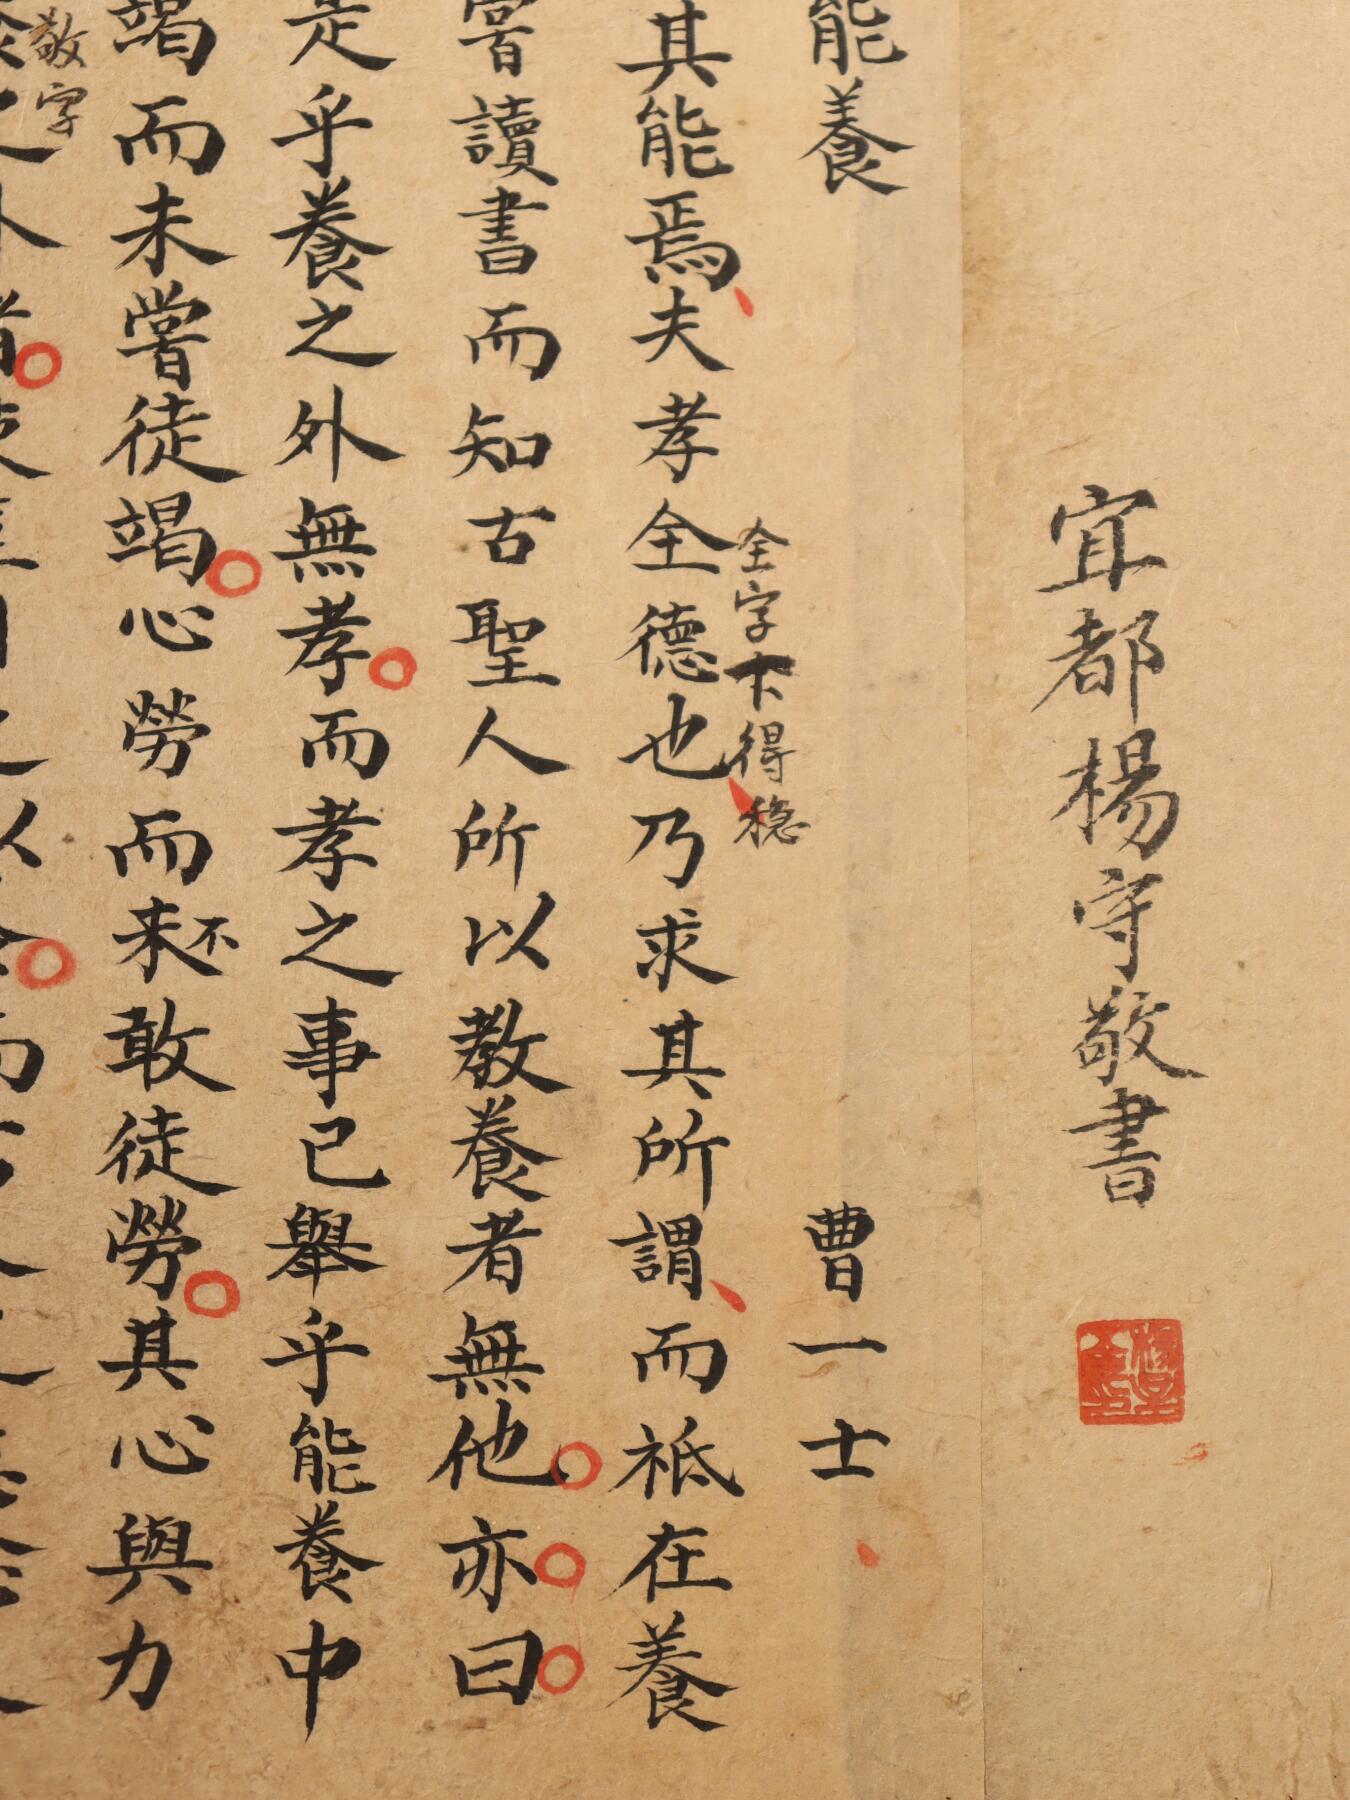 宜都楊守敬書
能養
曹一士
其能焉夫孝全德也乃求其所謂而祗在養
全字下得穩
嘗讀書而知古聖人所以教養者無他亦曰
是乎養之外無孝而孝之事已舉乎能養中
竭而未嘗徒竭心勞而未敢徒勞其心與力
不
敬字